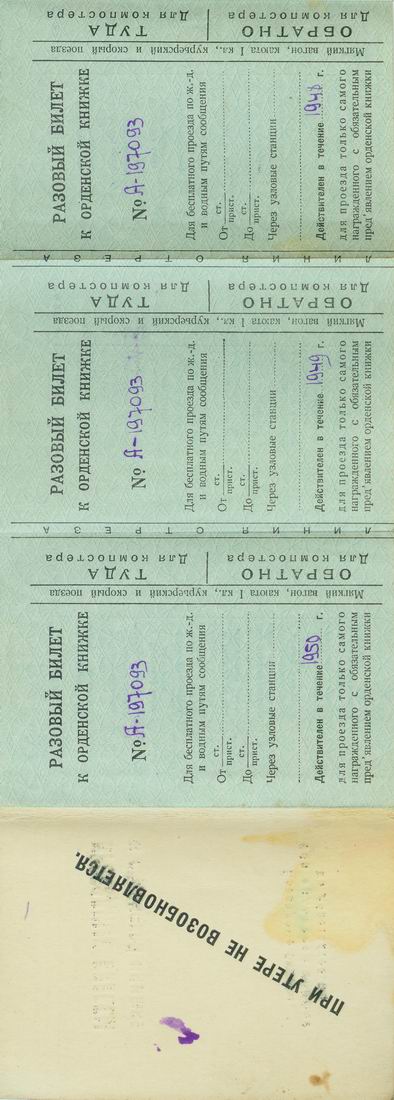 Мягкий вагон, каюта I кл., курьерский и скорый поезда
ТУДА
Для компостера
ОБРАТНО
Для компостера
РАЗОВЫЙ БИЛЕТ
К ОРДЕНСКОЙ КНИЖКЕ
№ А-197093
Для бесплатного проезда по ж.-д.
и водным путям сообщения
От ст. прист.
До ст. прист.
Через узловые станции
Действителен в течение 1948 г.
для проезда только самого
награжденного с обязательным
пред'явлением орденской книжки
ЛИНИЯ ОТРЕЗА
Мягкий вагон, каюта I кл., курьерский и скорый поезда
ТУДА
Для компостера
ОБРАТНО
Для компостера
РАЗОВЫЙ БИЛЕТ
К ОРДЕНСКОЙ КНИЖКЕ
№ А-197093
Для бесплатного проезда по ж.-д.
и водным путям сообщения
От ст. прист.
До ст. прист.
Через узловые станции
Действителен в течение 1949 г.
для проезда только самого
награжденного с обязательным
пред'явлением орденской книжки
ЛИНИЯ ОТРЕЗА
Мягкий вагон, каюта I кл., курьерский и скорый поезда
ТУДА
Для компостера
ОБРАТНО
Для компостера
РАЗОВЫЙ БИЛЕТ
К ОРДЕНСКОЙ КНИЖКЕ
№ А-197093
Для бесплатного проезда по ж.-д.
и водным путям сообщения
От ст. прист.
До ст. прист.
Через узловые станции
Действителен в течение 1950 г.
для проезда только самого
награжденного с обязательным
пред'явлением орденской книжки
ПРИ УТЕРЕ НЕ ВОЗОБНОВЛЯЕТСЯ.